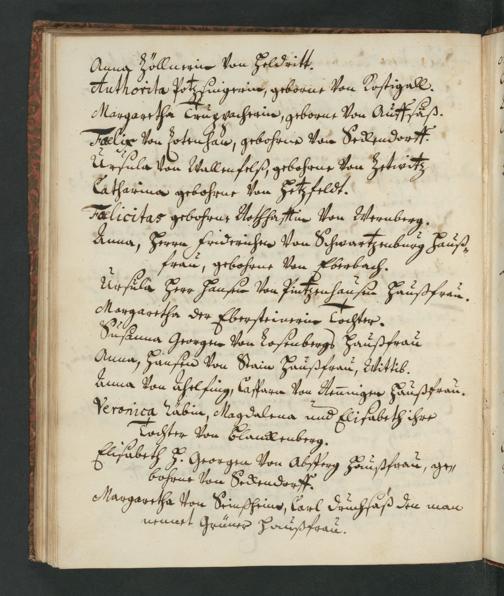 Anna Zöllnerin von Heldritt.
Authorita Potzlingerin, geborne von Kostigall.
Margaretha Truppacherin, geborne von Auffsäß.
Fœlix von Rotenhan, gebohrne von Seckendorff.
Ursula von Wallenfelß, gebohrne von Zetwitz
Catharina gebohrne von Hetzfeldt.
Fœlicitas gebohrne Nothhafftin von Wernberg.
Anna, Herrn Friderichen von Schwartzenburg Hauß-
frau, gebohrne von Eberbach.
Ursula Herr Hansen von Pintzenhausen Haußfrau.
Margaretha der Ebersteinerin Tochter.
Susanna Georgen von Rosenbergs Haußfrau
Anna, Hansen von Stain Haußfrau, Wittib.
Anna von Ehelfing, Casparn von Haußfrau.
Veronica Räbin, Magdalena und Elisabeth ihre
Tochter von Blanckenberg.
Elisabeth H. Georgen von Absperg Haußfrau, ge-
bohrne von Seckendorff.
Margaretha von Seinßheim, Carl Druchsaß den man
nennet Grüner Haußfrau.